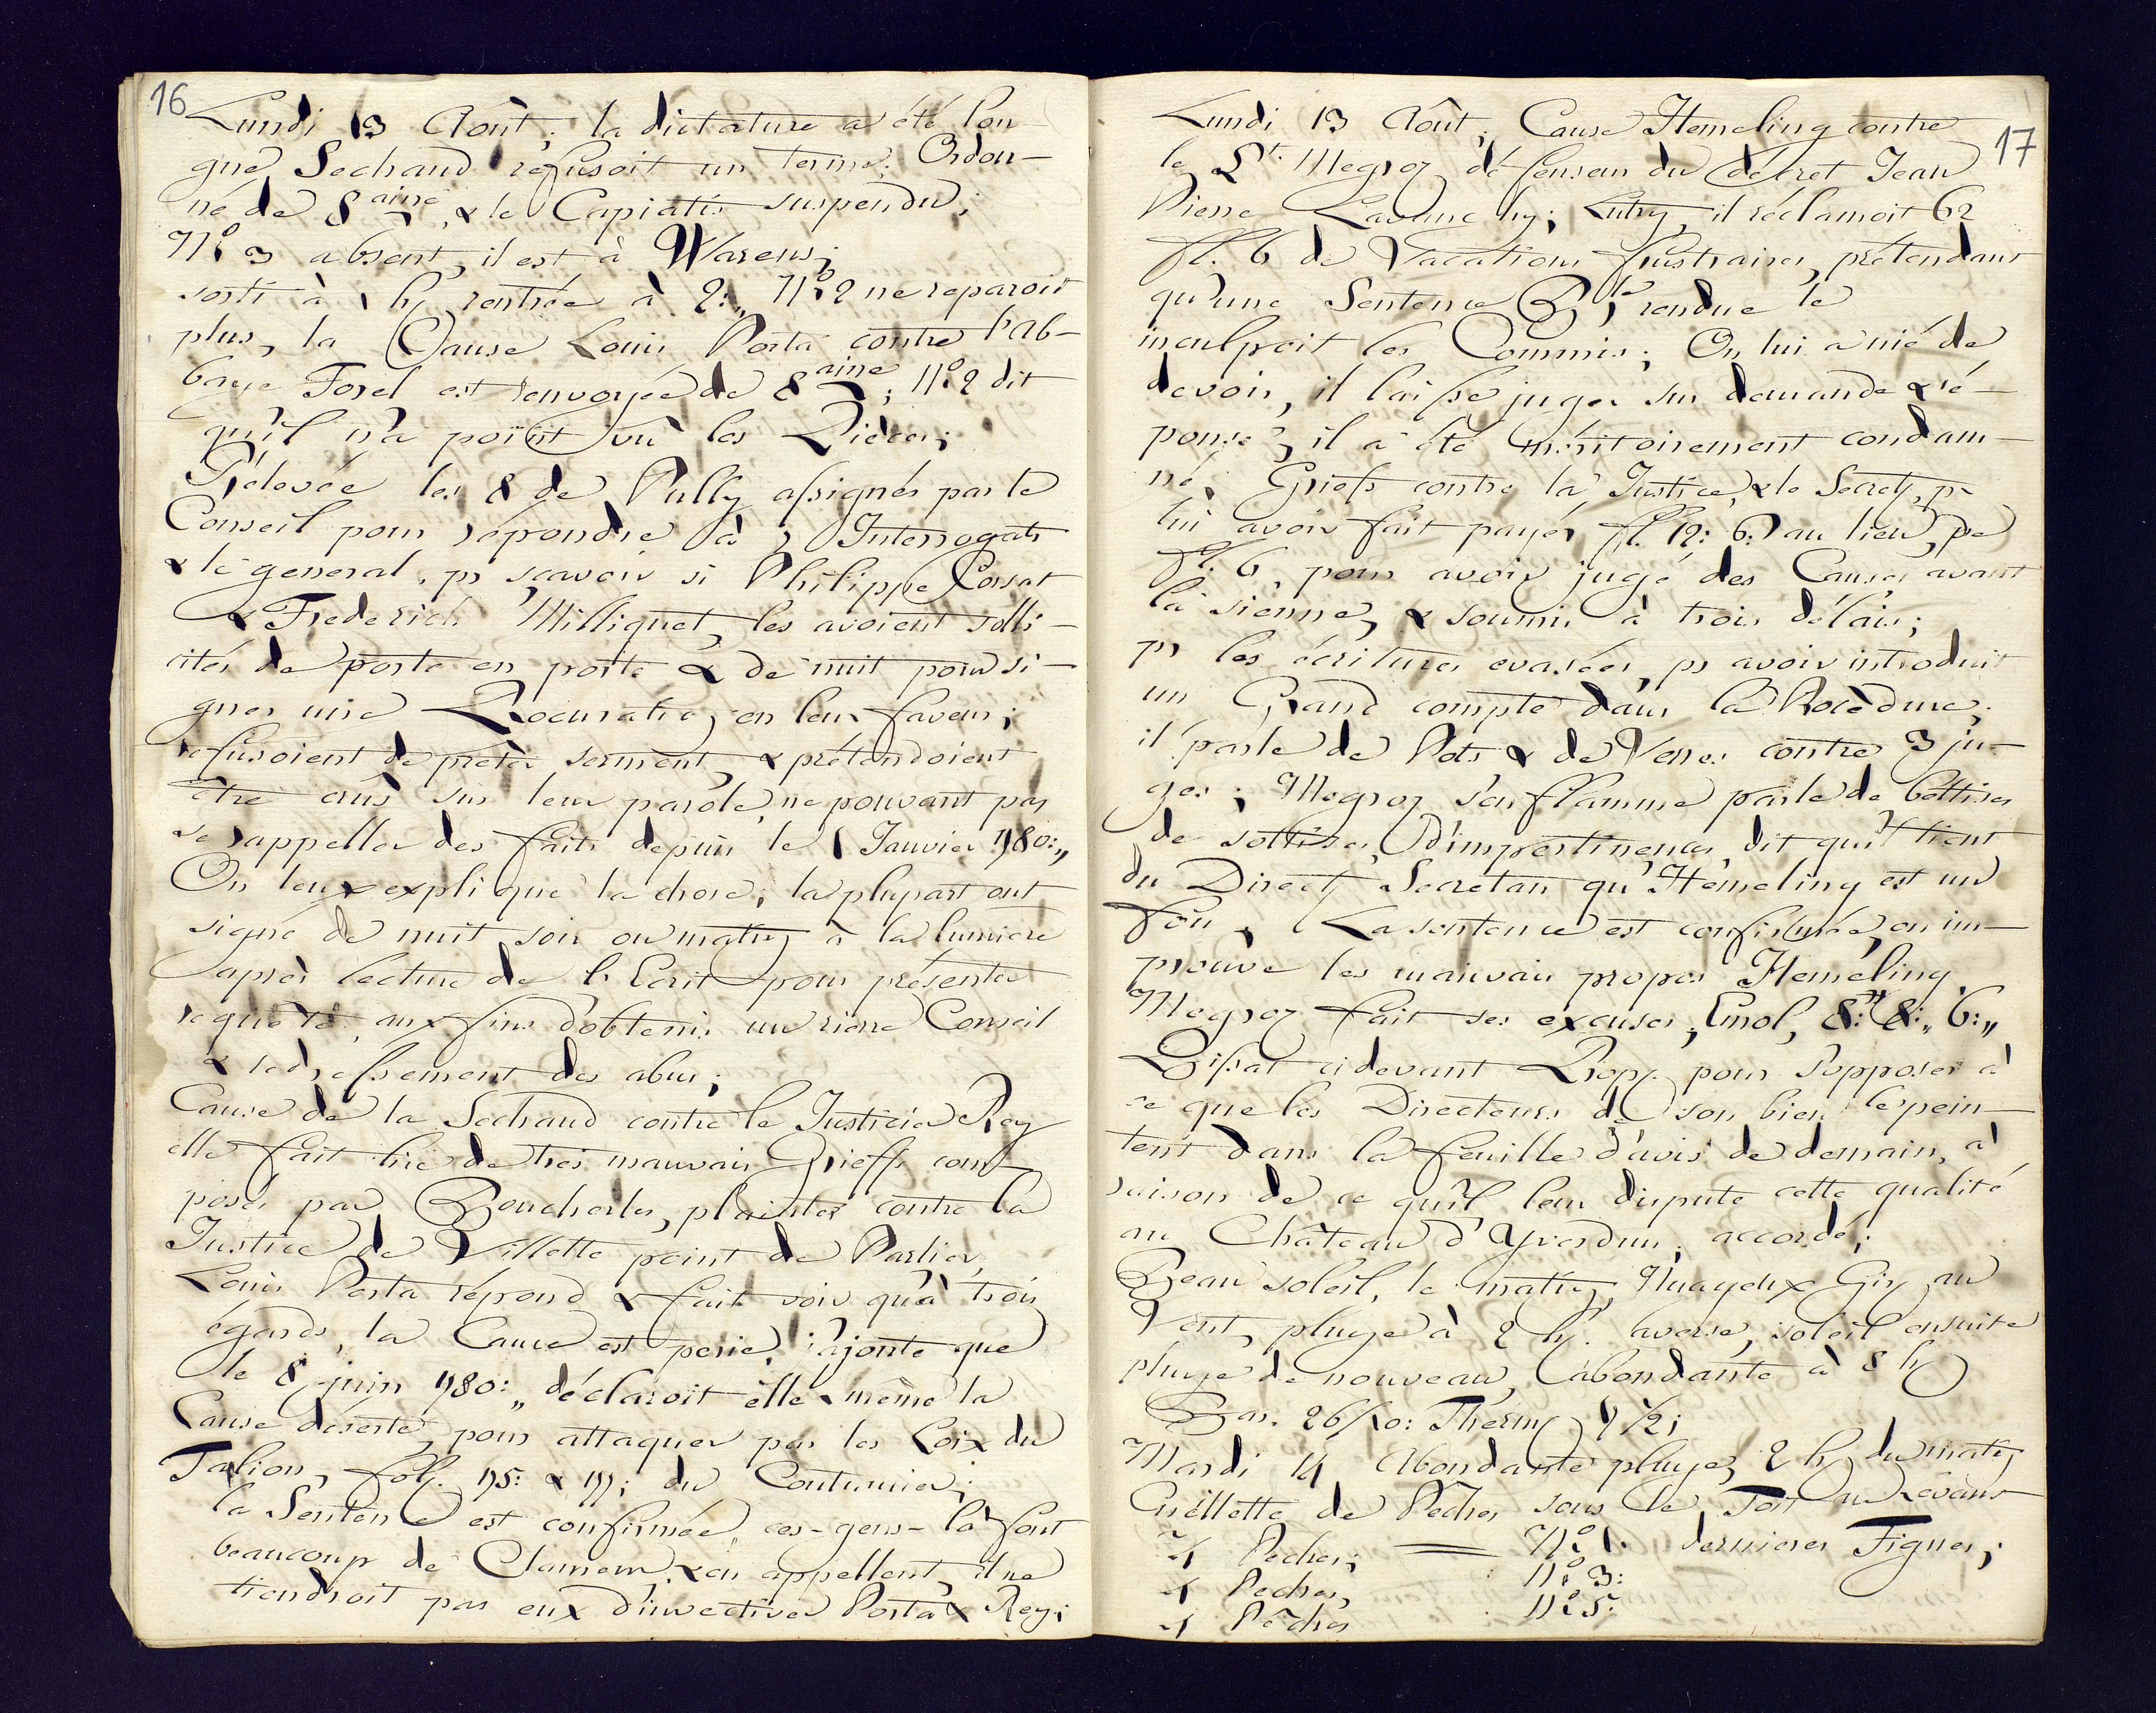 16
Lundi 13 Août; la dictature a été lon-
gue, Sechaud réfusoit un terme. Ordon-
né de 8aine, & le Capiatis suspendu;
N° 3 absent, il est à Warens;
sorti à 1 h rentrée à 2:,, N° 2 ne reparoit
plus, la Cause Louis Porta contre l'Ab-
baye Forel est renvoyée de 8aine; N° 2 dit
qu'il n'a point vû les Pièces;
Rélevée les 8 de Pully assignés par le
Conseil pour répondre à 3 Interrogats
& le general, pr sçavoir si Philippe Cossat
& Frederich Milliquet, les avoient solli-
cités de porte en porte & de nuit pour si-
gner une Procuratio, en leur faveur;
refusoient de prêter serment, & prétendoient
être crûs sur leur parole, ne pouvant pas
se rappeller des faits depuis le 1 Janvier 1780:,,
On leur explique la chose; la plupart ont
signé de nuit soir ou matin à la lumiere
après lecture de l'Ecrit pour présenter
requête aux fins d'obtenir un riere Conseil
& redressement des abus;
Cause de la Sechaud contre le Justicier Rey
elle fait lire de très mauvais Grieffs com-
posés par Boucherles, plaintes contre la
Justice de Villette point de Parlier,
Louis Porta répond & fait voir qu'à trois
égards, la Cause est perie, ajoute que
le 8 juin 1780:,, déclaroit elle même la
Cause déserte, pour attaquer par les Loix du
Talion, fol. 175: & 177; du Coutumier;
la Sentence est confirmée, ces-gens-là font
beaucoup de Clameur, & en appellent, il ne
tiendroit pas eux d'invectiver Porta & Rey;
17
Lundi 13 Août; Cause Hemeling contre
le Lt. Megroz défenseur du décret Jean
Pierre Lavanchy; Lutry, il réclamoit 62
fl. 6 de Vacations frustraires, prétendant
qu'une Sentence Ble rendue le
inculpoit les Commis; On lui a nié de
devoir, il laisse juger sur demande & ré-
ponse, il a été méritoirement condam-
né; Griefs contre la Justice, & le Secrety, pr
lui avoir fait payer fl. 12: 6: au lieu de
fl. 6, pour avoir jugé des Causes avant
la sienne, & soumis à trois délais;
pr les écritures evasées, pr avoir introduit
un Grand compte dans la Procèdure;
il parle de Pots & de Verres contre 3 ju-
ges; Megroz s'enflamme parle de bêttises
de sottises, d'impertinences, dit qu'il tient
du Direct Secretan qu'Hemeling est un
fou. La sentence est confirmée, on im-
prouve les mauvais propos Hemeling
Megroz fait ses excuses, Emol, 8: 8:,, 6:,,
Bissat cidevant Prop. pour s'opposer à
ce que les Directeurs de son bien le pein-
tent dans la feuille d'avis de demain, à
raison de ce qu'il leur dispute cette qualité
au Château d'Yverdun; accordé;
Beau soleil, le matin, Nuageux Gris au
Vent, pluye à 2 h. averse, soleil ensuite
pluye de nouveau, abondante à 8 h
Bar. 26/10: Therm 17 1/2;
Mardi 14 Abondante pluye, 2 h, du matin
Cuëllette de Pêches sous le Toit au Levant
4 Peches; N° 1. dernieres Figues;
4 Peches, N° 3:
4 Pêches N° 5: